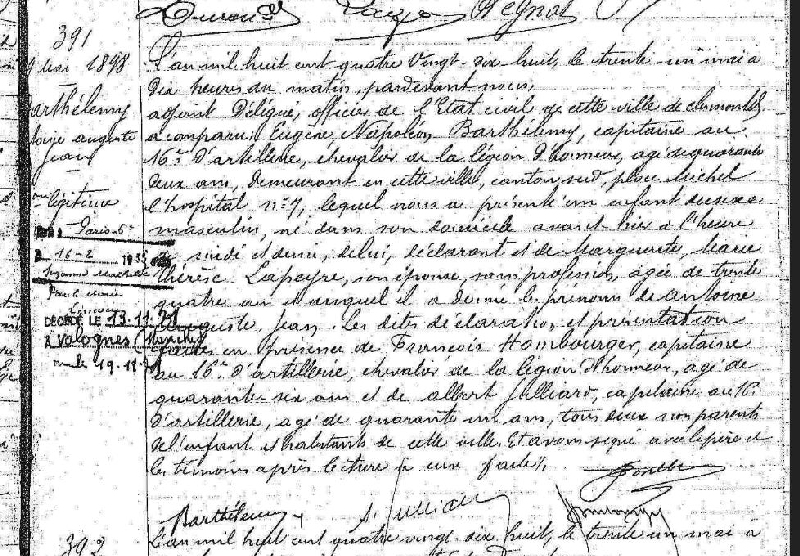 Peynot
391
mai 1898
Barthélemy
Antoine Auguste
Jean
légitime
Paris 6e
16-2
DÉCÉDÉ LE 13.11.71
A Valognes (Manche)
le 19.11.71
L'an mil huit cent quatre vingt-dix huit, le trente-un mai à
dix heures du matin, pardevant nous,
adjoint Délégué, officier de l'Etat civil de cette ville de Clermont-Fd
a comparu Eugène, Napoléon Barthélemy, capitaine au
16me D'artillerie, chevalier de la légion D'honneur, agé de quarante
deux ans, demeurant en cette ville, canton sud, place Michel
l'hospital, n° 7, lequel nous a présenté un enfant du sexe
masculin, né dans son domicile avant-hier à l'heure
de midi et demi, de lui, déclarant et de Marguerite, Marie
Thérèse Lapeyre, son épouse, sans profession, agée de trente
quatre ans et auquel il a donné les prénoms de Antoine
Auguste, Jean. Les dites déclaration et présentation
faites en présence de François Hombourger, capitaine
au 16e D'artillerie, chevalier de la légion D'honneur, agé de
quarante-six ans et de Albert Julliard, capitaine au 16e
D'artillerie, agé de quarante un ans, tous deux non parents
de l'enfant et habitants de cette ville. Et avons signé avec le père et
les témoins après lecture à eux faite.
Barthélemy
A. Julliard
392
L'an mil huit cent quatre vingt-dix huit, le trente un mai à